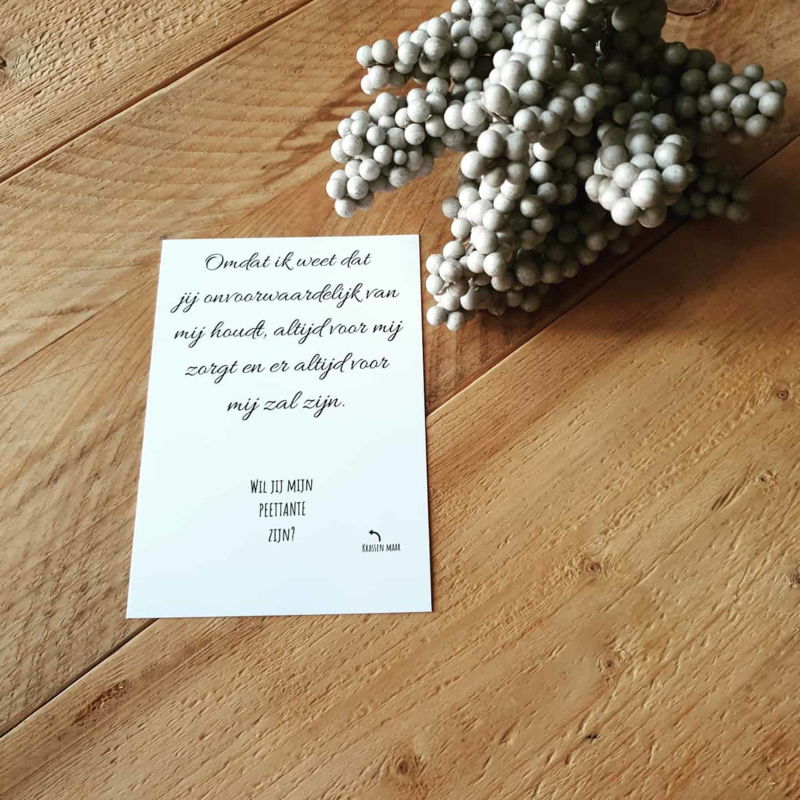 Omdat ik weet dat
jij onvoorwaardelijk van
mij houdt, altijd voor mij
zorgt en er altijd voor
mij zal zijn.
Wil jij mijn
peettante
zijn?
Krassen maar